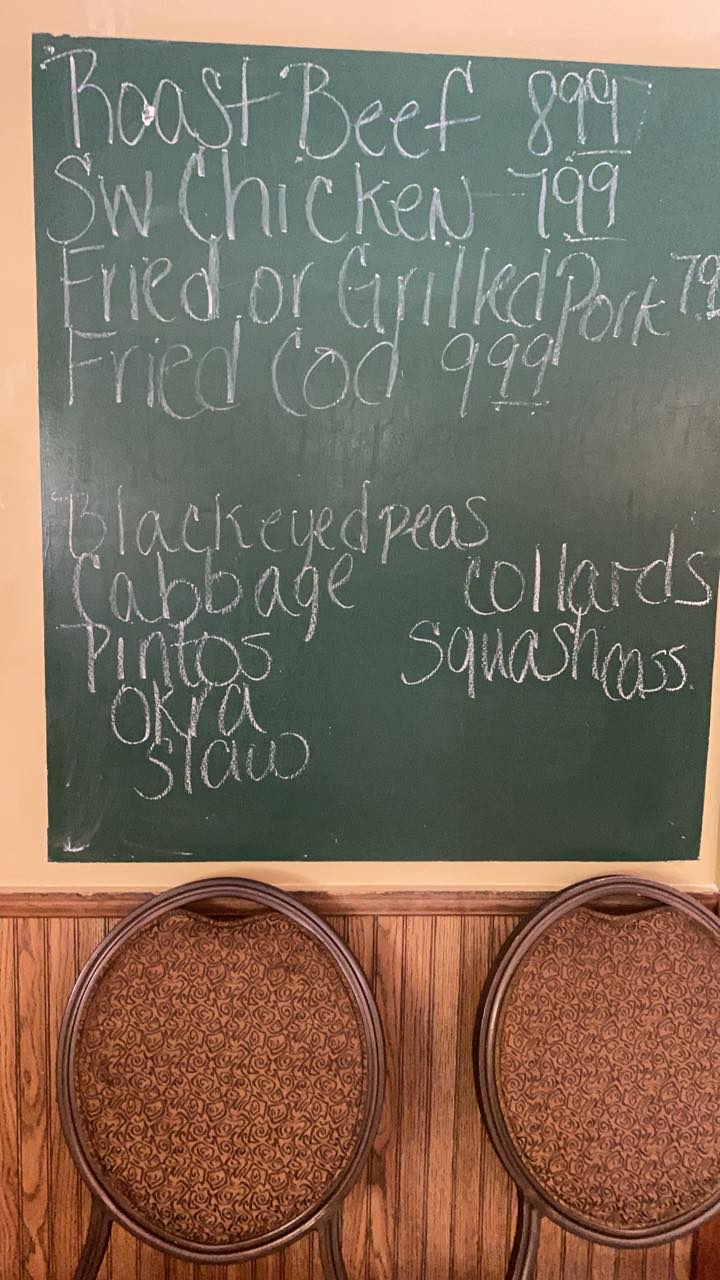 Roast Beef 8 99
Sw Chicken 7 99
Fried or Grilled Pork 79
Fried Cod 9 99
Blackeyed peas
Cabbage collards
Pintos Squash cass.
Okra
Slaw